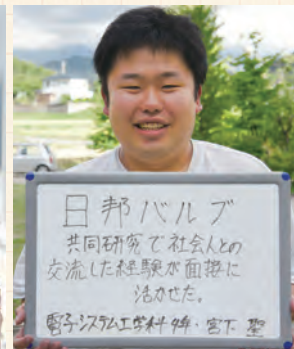 日邦バルブ
共同研究で社会人との
交流した経験が面接に
活かせた。
電子システム工学科4年・宮下 聖